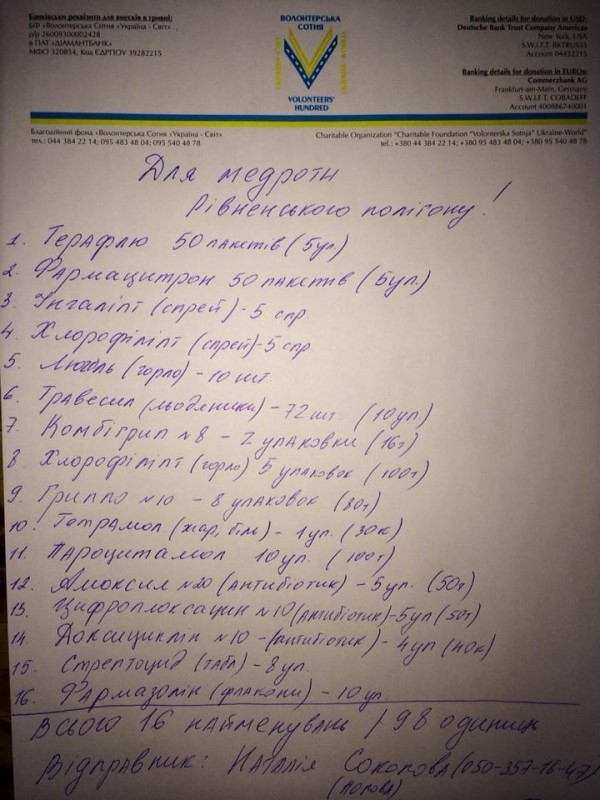 Банківські реквізити для внесків в гривні:
БФ «Волонтерська Сотня «Україна - Світ»
р/р 26009300002428
в ПАТ «ДІАМАНТБАНК»
МФО 320854, Код ЄДРПОУ 39282215
ВОЛОНТЕРСЬКА
СОТНЯ
VOLONTEERS'
HUNDRED
Banking details for donation in USD:
Deutsche Bank Trust Company Americas
New York, USA
S.W.I.F.T. BKTRUS33
Account 04422215
Banking details for donation in EUROs:
Commerzbank AG
Frankfurt-am-Main, Germany
S.W.I.F.T. COBADEFF
Account 400886740001
Благодійний фонд «Волонтерська Сотня «Україна - Світ»
тел.: 044 384 22 14; 095 483 48 04; 095 540 48 78
Charitable Organization "Charitable Foundation "Volonterska Sotnja" Ukraine-World"
tel.: +380 44 384 22 14; +380 95 483 48 04; +380 95 540 48 78
Для медроти
Рівненського полігону!
1. Терафлю 50 пакетів (5уп.)
2. Фармацитрон 50 пакетів (5уп.)
3. Інгаліпт (спрей) - 5 спр.
4. Хлорофіліпт (спрей) - 5 спр
5. (горло) - 10 шт.
6. Травесил (льодяники) - 72 шт. (10 уп)
7. Комбігрип №8 - 2 упаковки (16т)
8. Хлорофіліпт (горло) 5 упаковок (100т)
9. Гриппо №10 - 8 упаковок (80т)
10. (жар, біль) - 1 уп. (30к)
11. Пароцитамол 10 уп. (100т)
12. Амоксил №20 (антибіотик) - 5 уп. (50т)
13. Цифроплоксацин №10 (антибіотик) - 5уп (50т)
14. Доксициклін №10 - (антибіотик) - 4уп (40к)
15. Стрептоцид (табл) - 8 уп.
16. Фармазолін (флакони) - 10 уп.
Всього 16 найменувань / 98 одиниць
Відправник: Наталія Соколова (050-357-16-47)
(Попова)